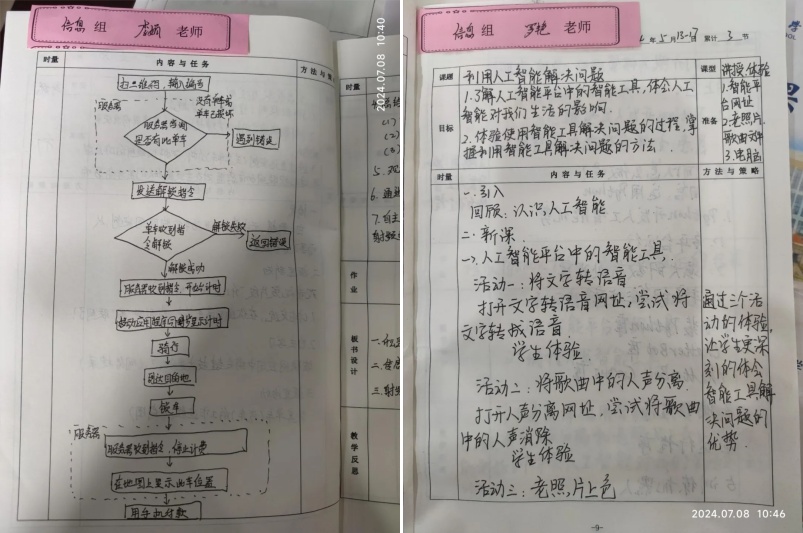 信息 组 老师
2024.07.08 10:40
时量
内容与任务
方法与策
扫二维码,输入编号
服务器
没有单车或
单车已损坏
服务器查询
是否有此单车
遇到错误
发送解锁指令
单车收到指
令解锁
解锁失败
返回错误
解锁成功
服务器收到指令,开始计时
骑行
到达目的地
锁车
服务器
服务器收到指令,停止计费
在地图上显示此车位置
用手机付款
时量
(1)
(2)
(3)
作业
板书设计
教学反思
信息 组 老师
年5月13-17 累计 3 节
课题
利用人工智能解决问题
课型
讲授.体验
目标
1.了解人工智能平台中的智能工具,体会人工
智能对我们生活的影响.
2.体验使用智能工具解决问题的过程,掌
握利用智能工具解决问题的方法
准备
1.智能平
台网址
2.老照片,
歌曲文件
3.电脑
时量
内容与任务
方法与策略
一.引入
回顾:认识人工智能
二.新课.
一、人工智能平台中的智能工具.
活动一:将文字转语音
打开文字转语音网址,尝试将
文字转成语音
学生体验.
活动二:将歌曲中的人声分离.
打开人声分离网址,尝试将歌曲
中的人声消除
学生体验
活动三:老照片上色
通过三个活
动的体验,
让学生更深
刻的体会
智能工具解
决问题的
优势.
-9-
2024.07.08 10:46